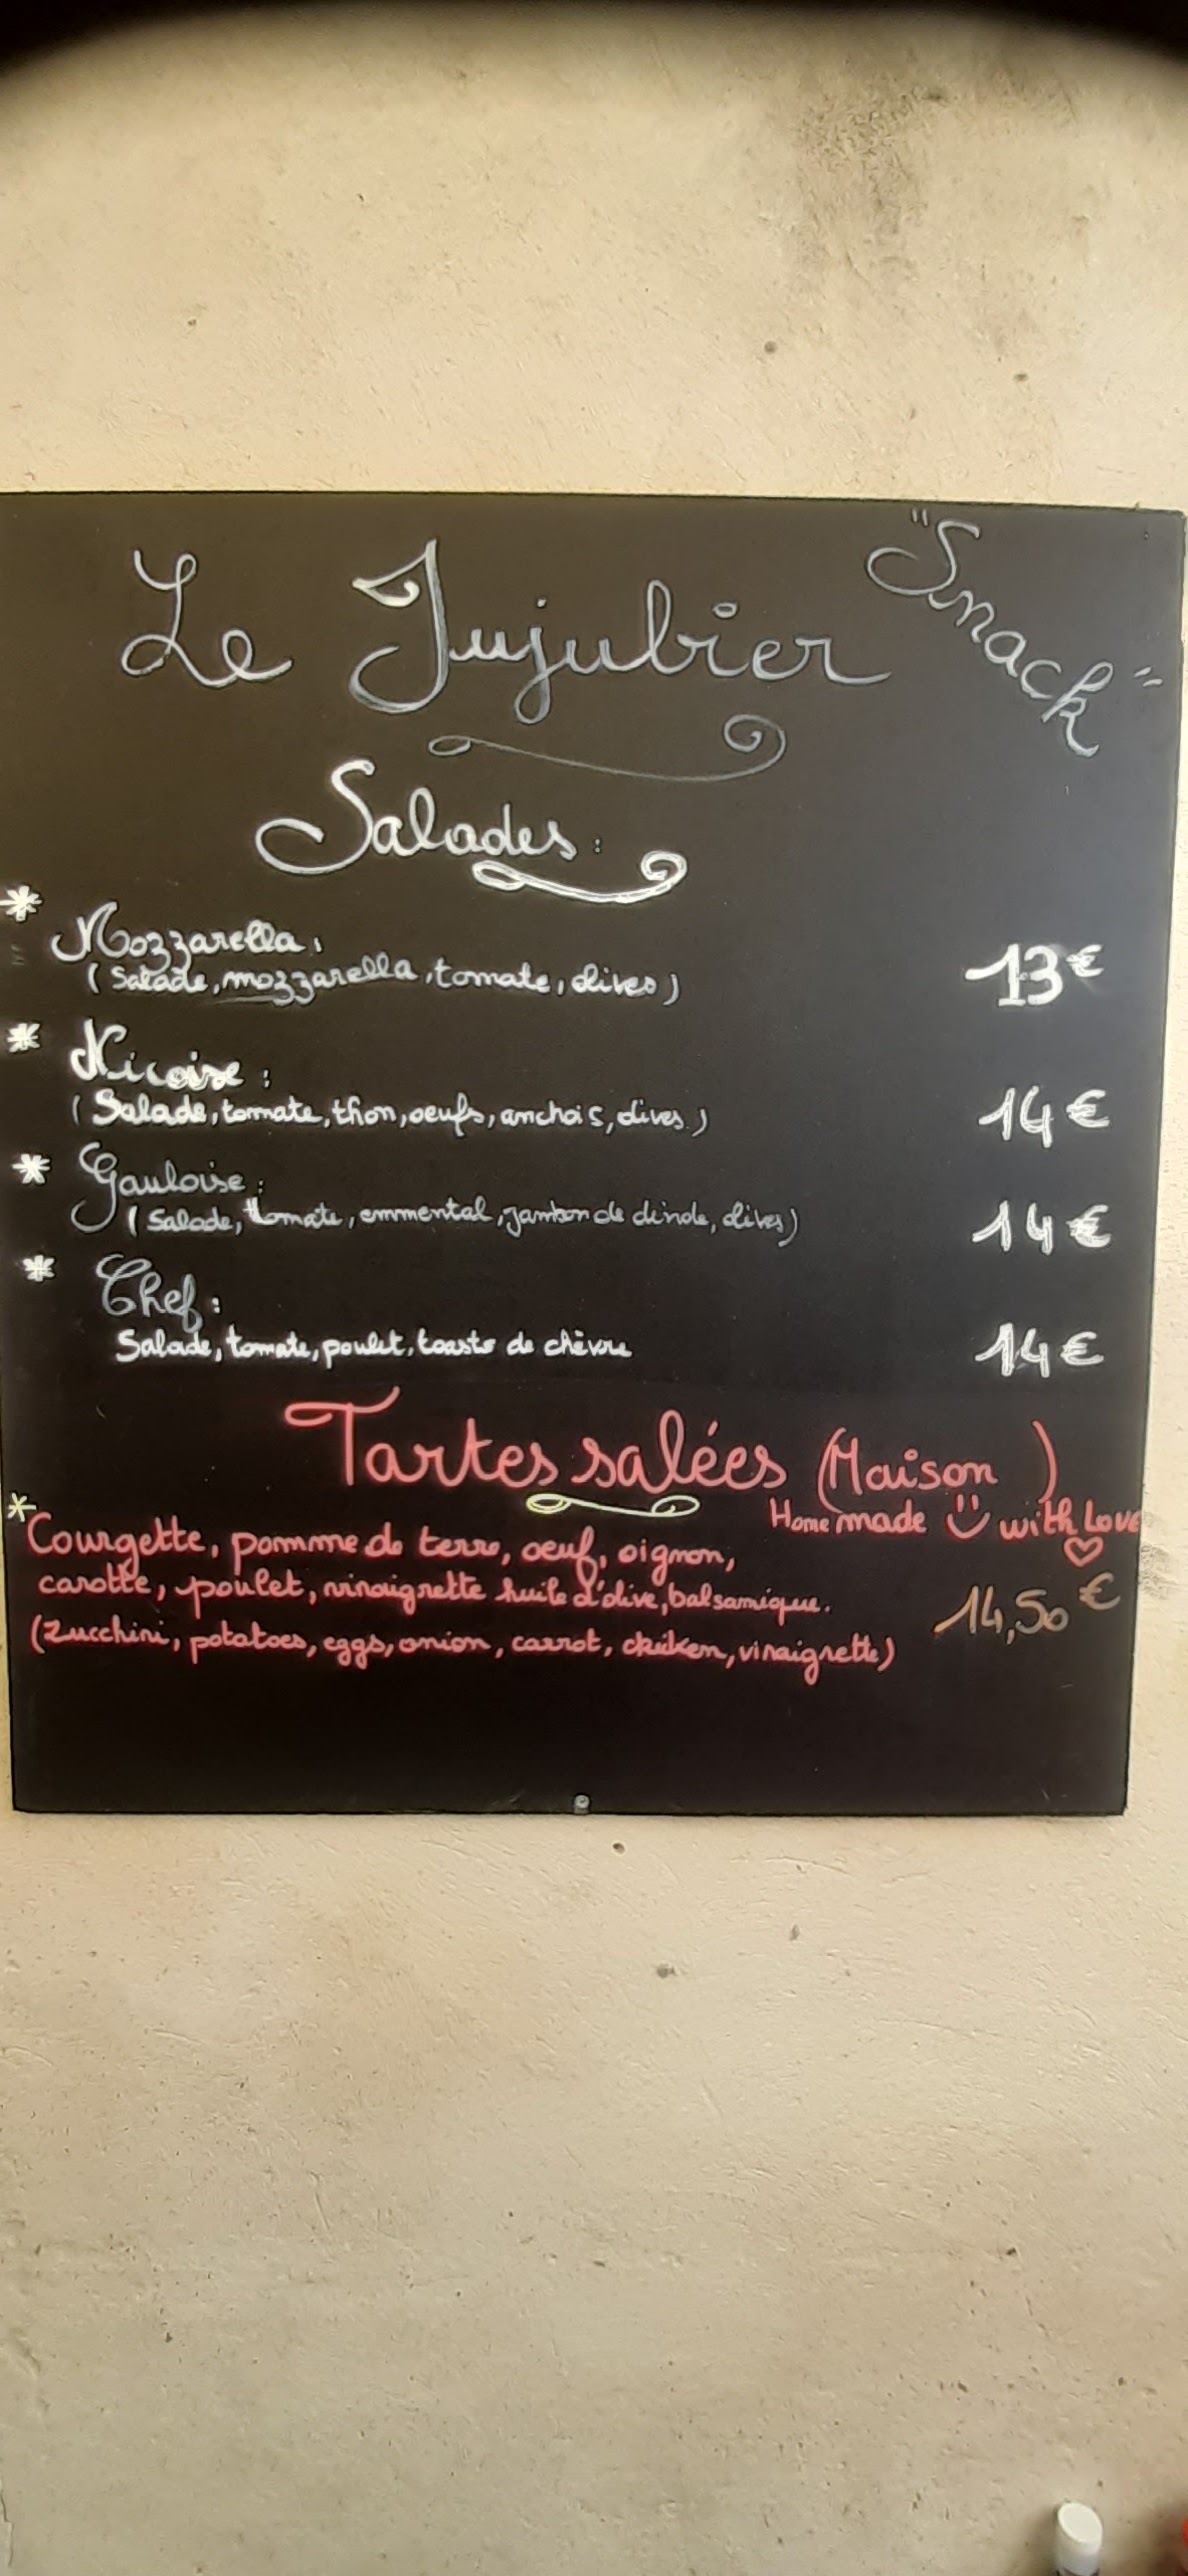 Le Jujubier "Snack"
Salades :
* Mozzarella :
(Salade, mozzarella, tomate, olives) 13€
* Nicoise :
(Salade, tomate, thon, oeufs, anchois, olives) 14€
* Gauloise :
(Salade, tomate, emmental, jambon de dinde, olives) 14€
* Chef :
Salade, tomate, poulet, toasts de chèvre 14€
Tartes salées (Maison )
Home made with Love
* Courgette, pomme de terre, oeuf, oignon,
carotte, poulet, vinaigrette huile d'olive, balsamique.
14,50€
(Zucchini, potatoes, eggs, onion, carrot, chiken, vinaigrette)